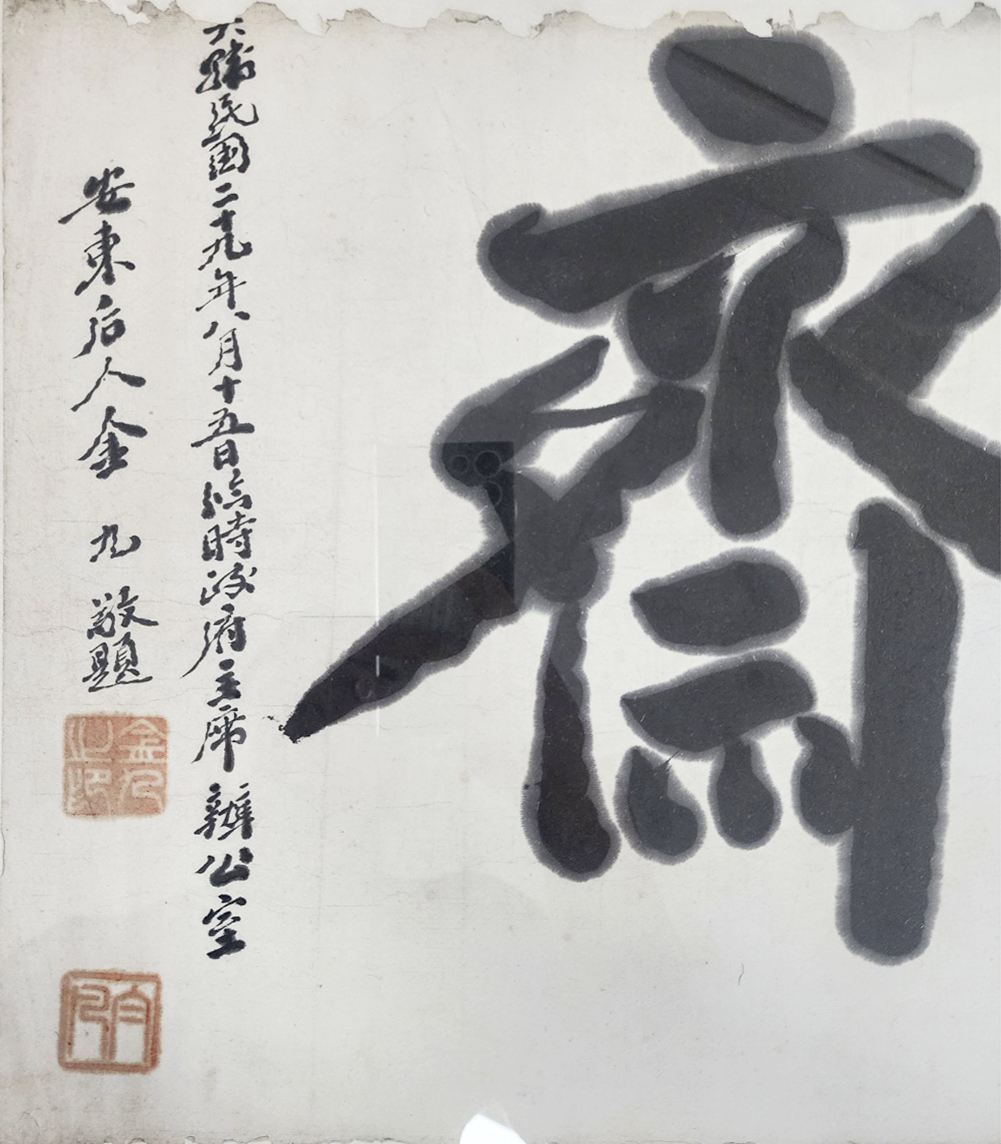 齋
大韓民國二十九年八月十五日臨時政府主席辦公室
安東后人金九敬題
金九之印
白凡